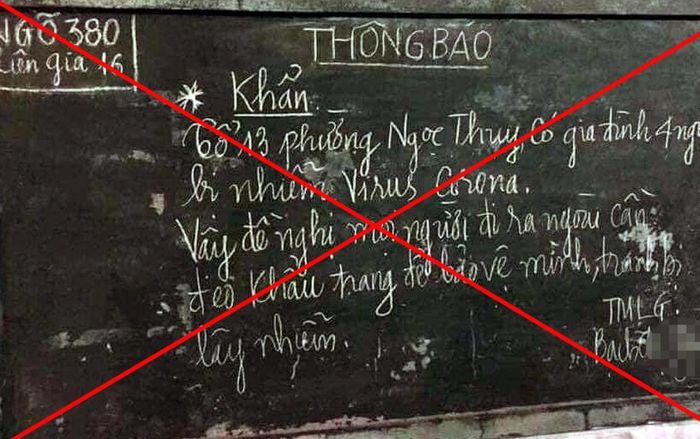 NGÕ 380
Liên gia 16
THÔNG BÁO
* Khẩn.
Tổ 13 phường Ngọc Thụy, có gia đình 4
bị nhiễm Virus Corona.
Vậy đề nghị mọi người đi ra ngoài cần
đeo khẩu trang để bảo vệ mình, tránh bị
lây nhiễm.
TMLG: